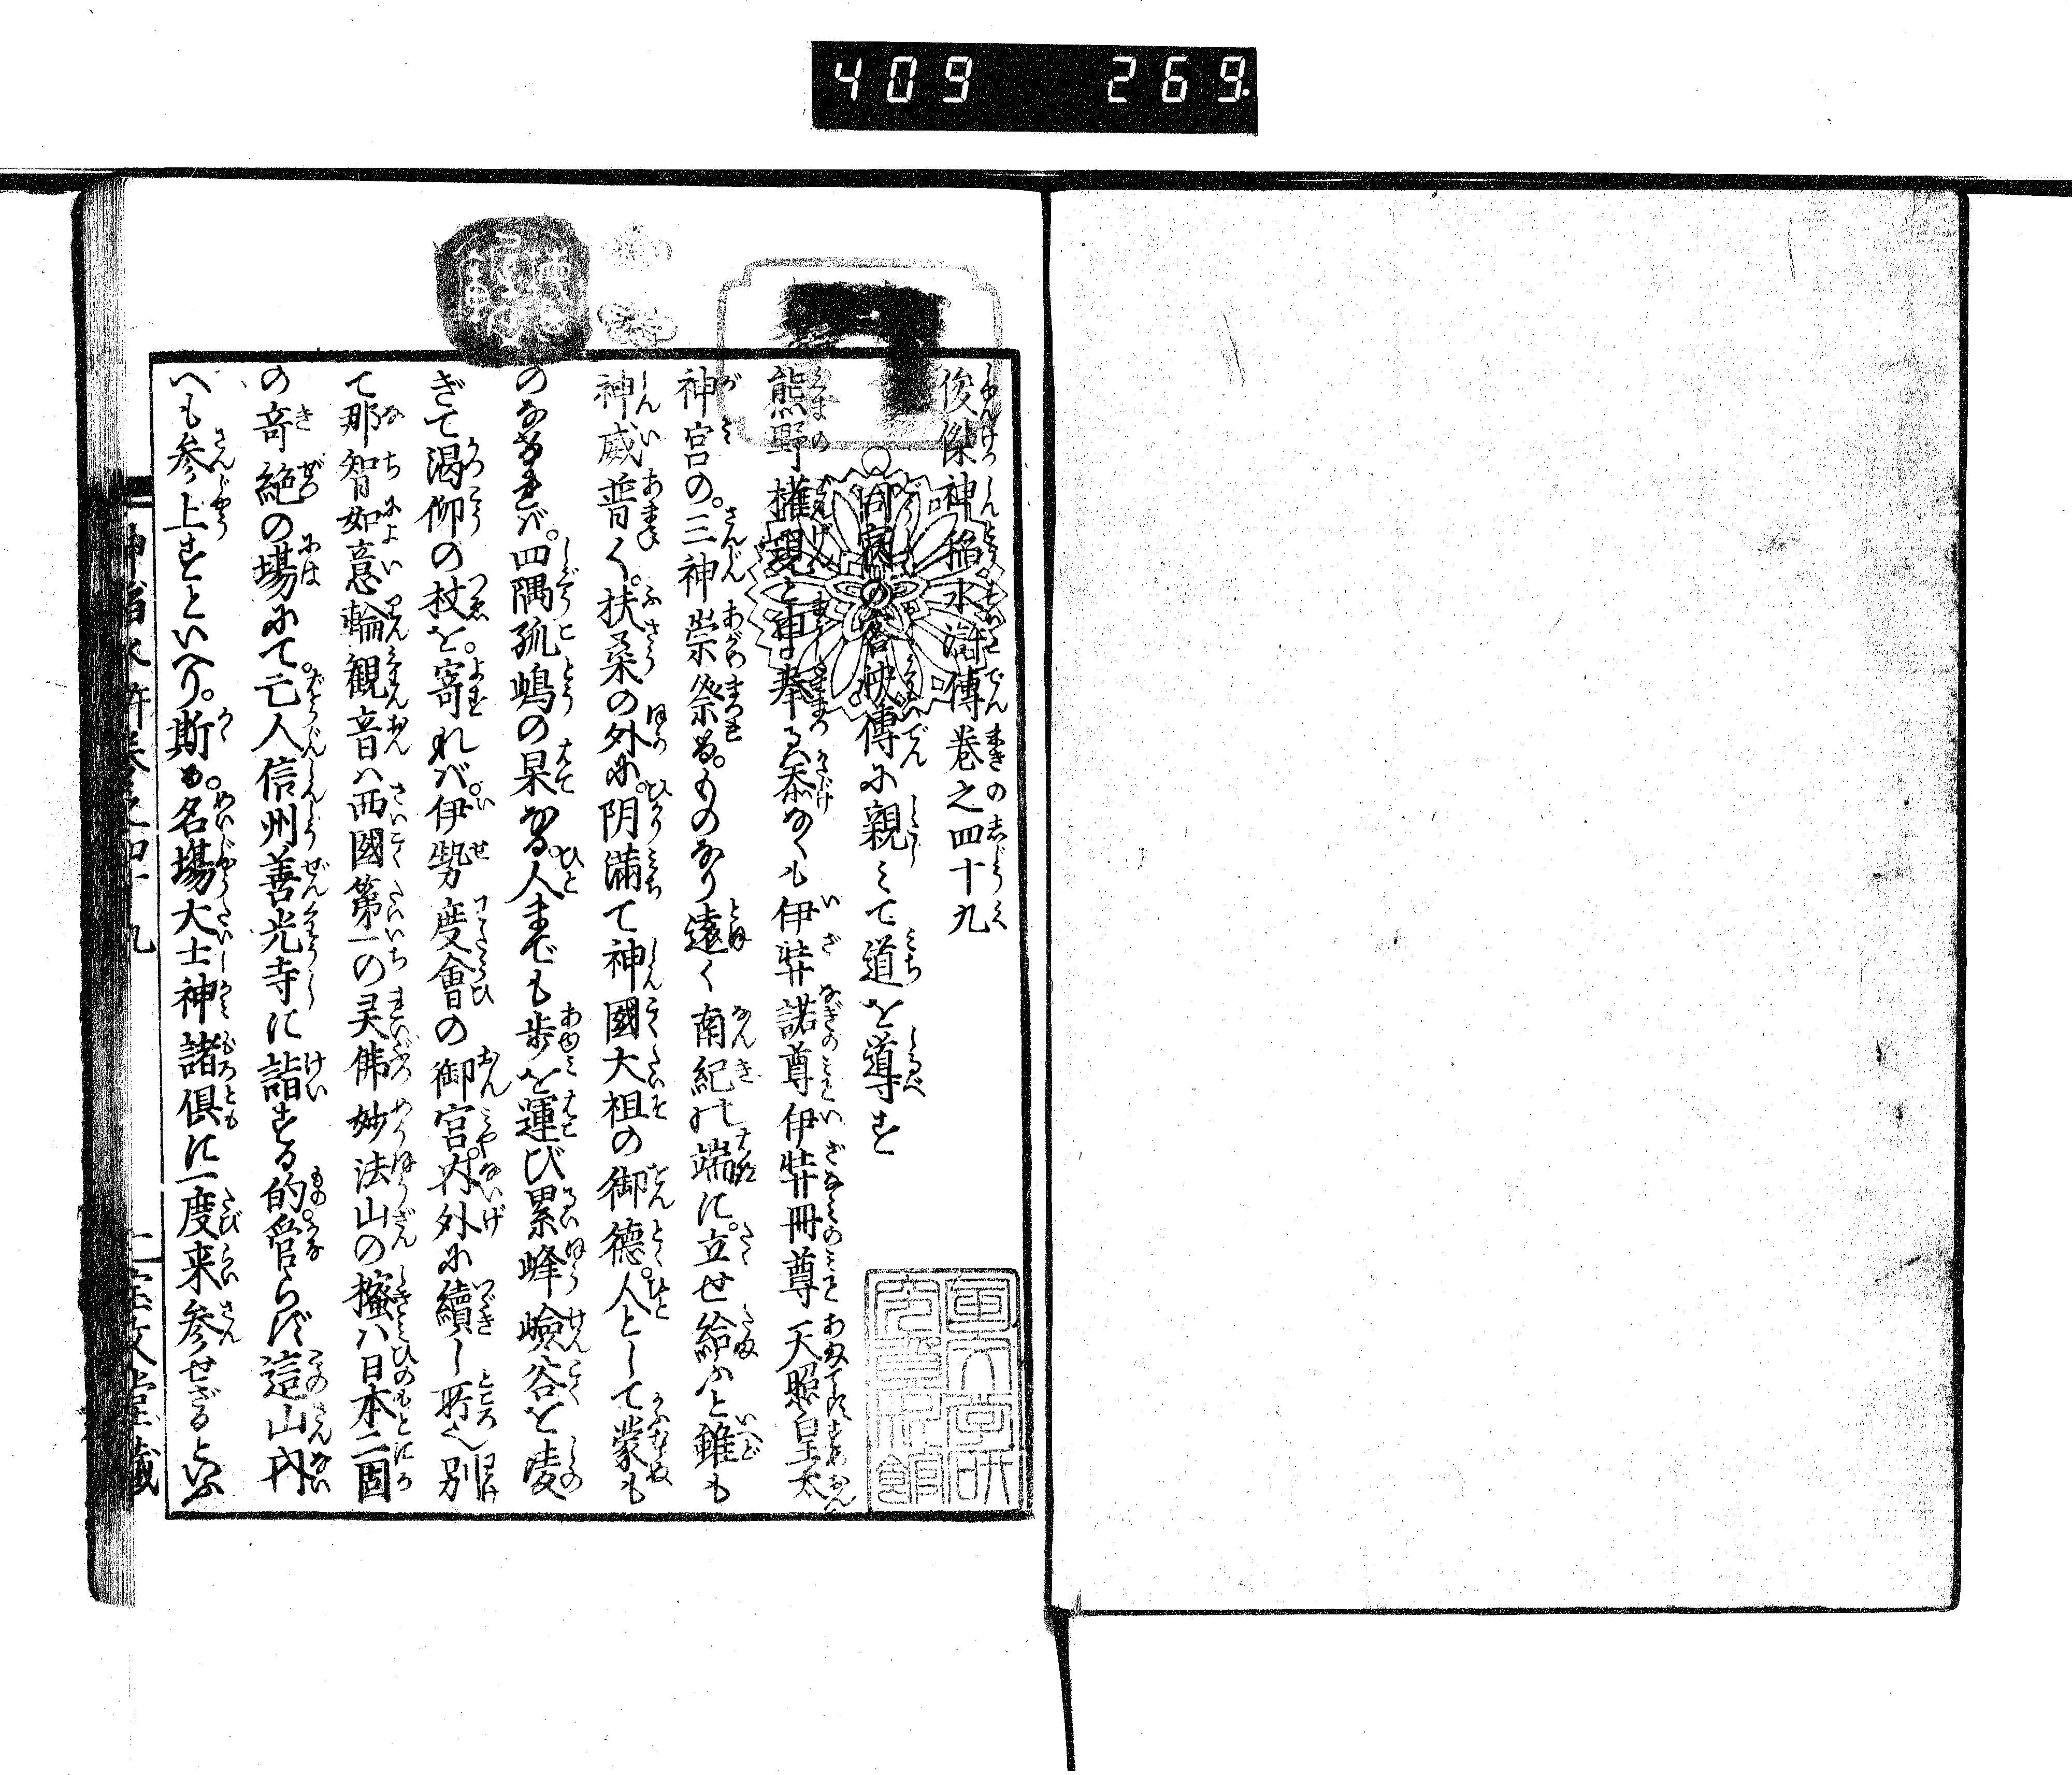 409 269.
俊傑神稲水滸傳巻之四十九
同病の各袂傳に親みて道を導す
熊野権現と申奉るは忝なくも伊弉諾尊伊弉冊尊天照皇太
神宮の。三神崇祭る。ものなり遠く南紀の端に。立せ給ふと雖も
神威普く。扶桑の外に。陰満て神國大祖の御徳。人として蒙も
のなければ。四隅孤嶋の果なる人までも歩を運び累峰嶮谷を凌
ぎて渇仰の杖を。寄れば。伊勢度會の御宮。内外に續し所へ別
て那智如意輪観音ハ西國第一の灵佛妙法山の樒ハ日本二箇
の竒絶の場にて。亡人信州善光寺に詣する的。管らず這山内
へも参上すといへり。斯も。名場大士神諸倶に一度来参せざるといふ
神稲水滸巻之四十九